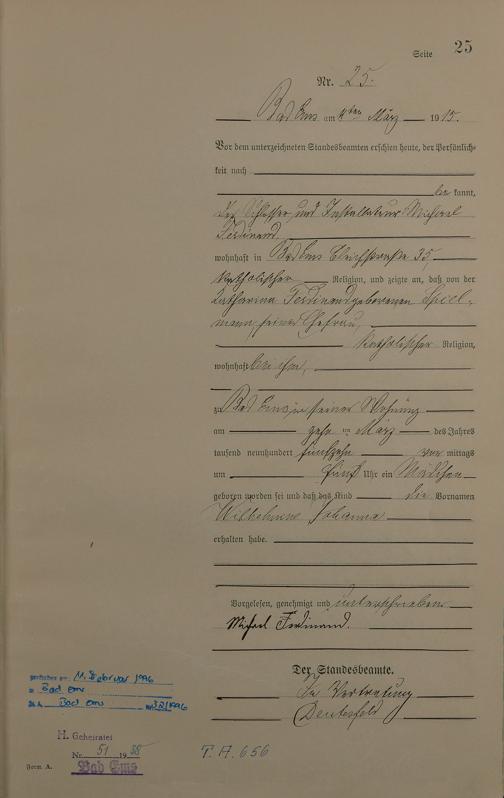 Seite 25
Nr. 25.
Bad Ems am ten März 1915.
Vor dem unterzeichneten Standesbeamten erschien heute, der Persönlich-
keit nach
be kannt,
der Schlosser und Installateur Michael
Ferdinand
wohnhaft in Bad Ems Bleichstraße 35,
katholischer Religion, und zeigte an, daß von der
Katharina Ferdinand geborenen Spiel-
mann, seiner Ehefrau,
katholischer Religion,
wohnhaft bei ihm,
zu Bad Ems in seiner Wohnung
am zehn ten März des Jahres
tausend neunhundert fünfzehn vor mittags
um fünf Uhr ein Mädchen
geboren worden sei und daß das Kind die Vornamen
Wilhelmine Johanna
erhalten habe.
Vorgelesen, genehmigt und unterschrieben
Michael Ferdinand.
Der Standesbeamte.
In Vertretung
gestorben am 11. Februar 1996
in Bad Ems
Bad Ems Nr. 32/1996
H. Geheiratet
Nr. 51 1938
Bad Ems
T. A. 656
Form A.